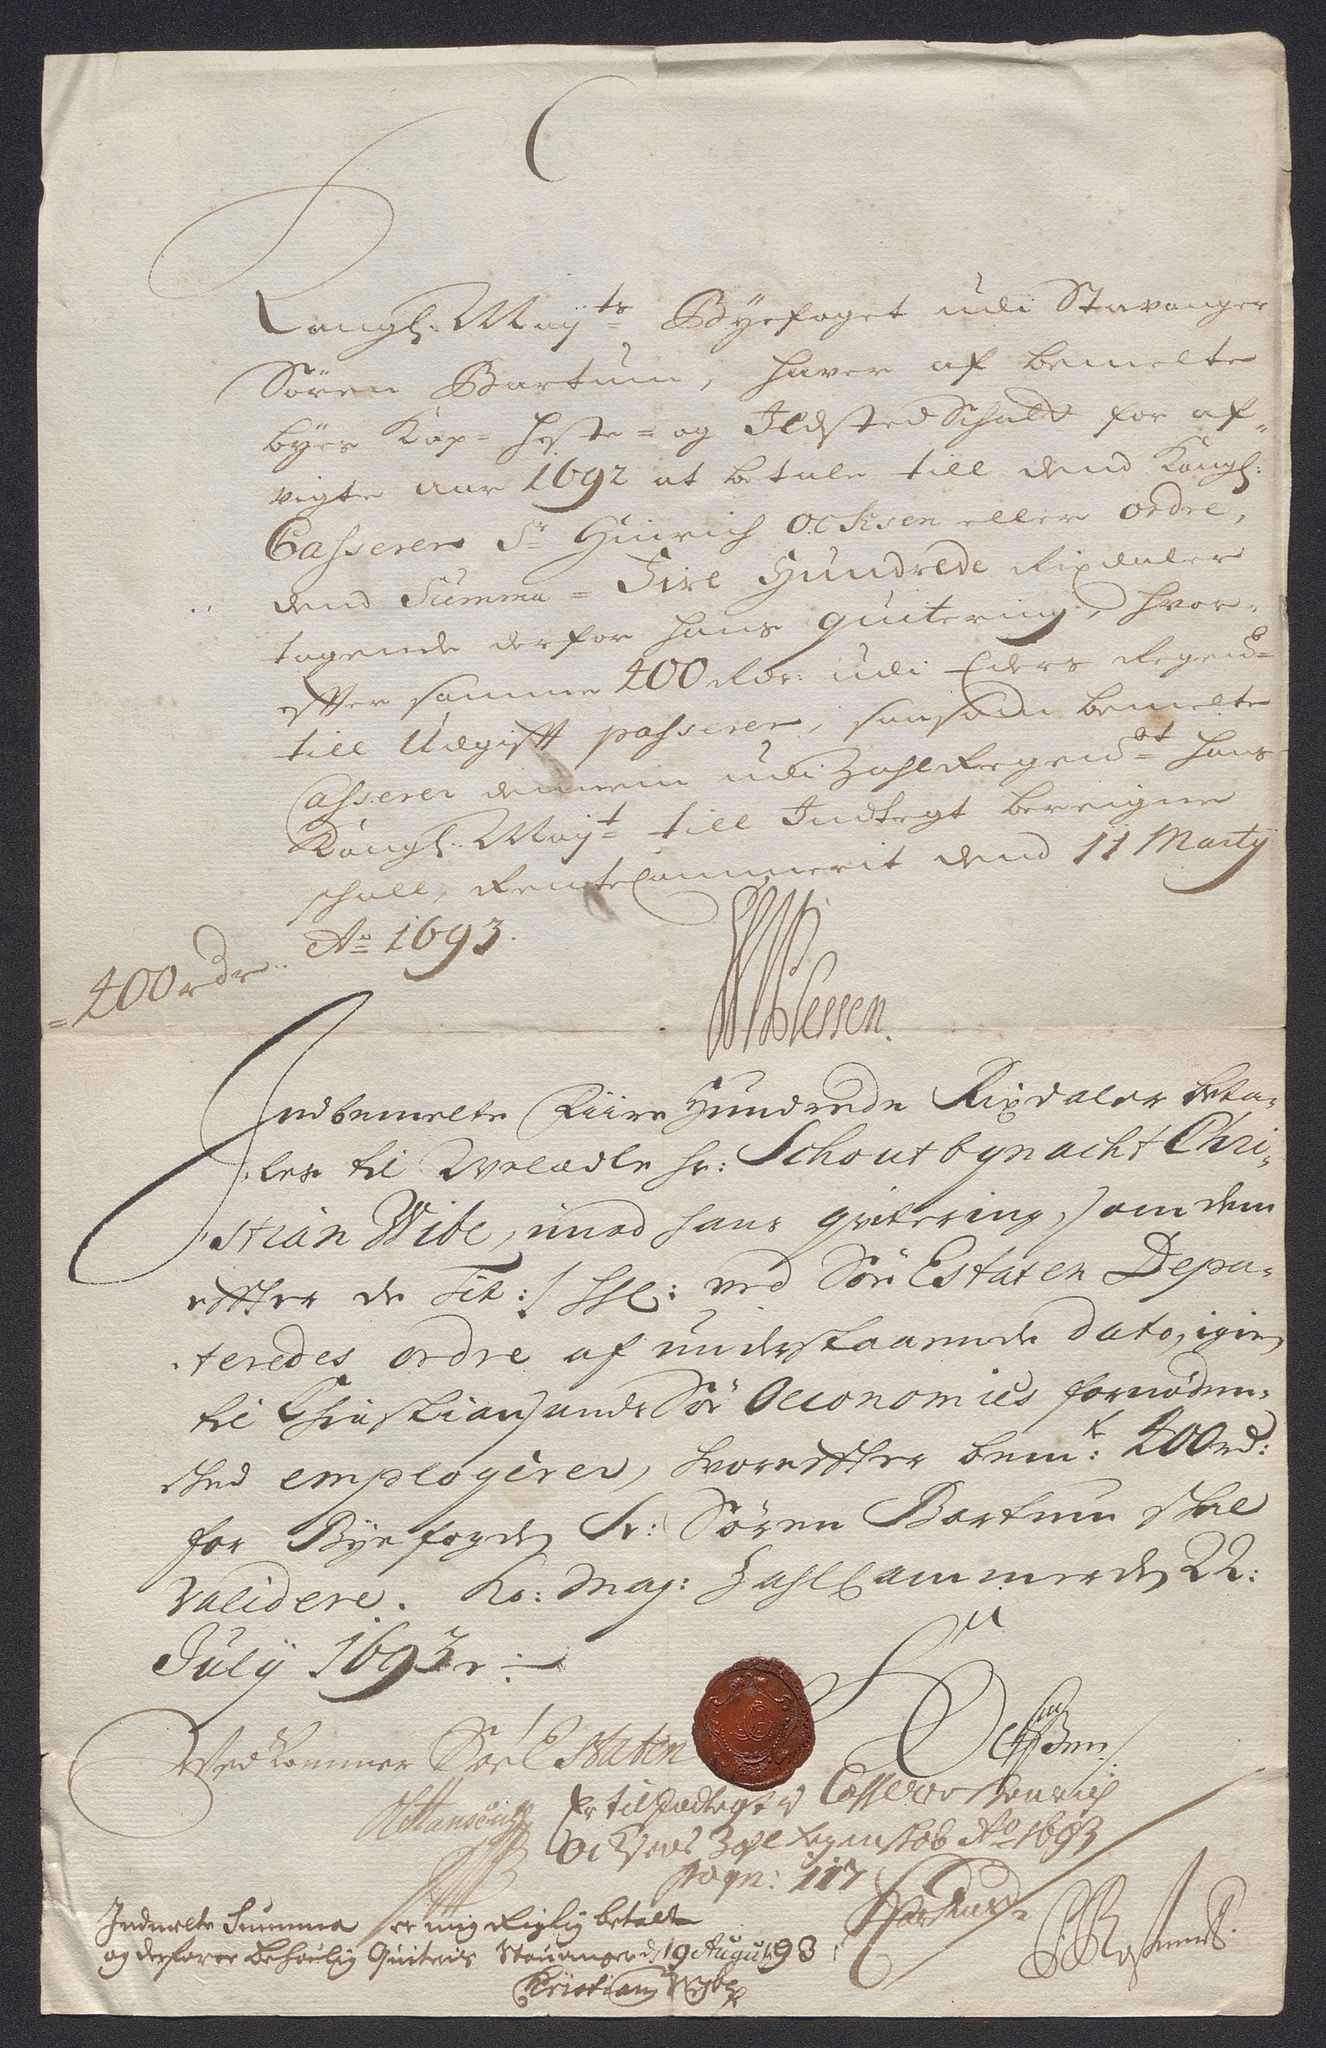 Kongl. Mayts Byefoget udi Stavanger
Sören Bartum, hafver af bemelte
byes Kop- Heste- og IldstedSchatt for af-
vigte aar 1692 at betale till dend Kongl:
Casserer Sr Hinrich Ocksen eller ordre,
dend Summa = Fire Hundrede Rixdaler
tagende derfor hans quitering, hvor-
effter samme 400 Rdr: udi Eders Regensk
till Udgifft passerer, saasom bemelte
Casserer dennem udi ZahlRegensk: Hans
Kongl. Mayt till Indtegt bereigne
schall, RenteCammerit dend 11 Marty
Ao 1693.
= 400 rdr
Plessen.
Indbemelte Fiire Hundrede Rixdaler beta-
les til Welædle Hr: Schoutbynacht Chri-
stian Wibe, imod hans qvitering, som dem
effter de Tit: ved Söe Estaten Depu-
teredes ordre af understaaende dato, igien
til Christiansands Söe Oeconomies fornöden-
hed employerer, hvoreffter bemt: 400 rd:
for Byefogden Sr: Sören Bartum skal
validere. Ko: May: ZahlCammer den 22:
July 1693
Vedkommer Söe Estaten
Ocksen
Er til Indtegt i Casserer Henrich
Ocksens Zahl Regenskab Ao 1693
pagn: 117
Indmelte Summa er mig Rigtig betalt
og derforre behörlig Quiteris Stavanger d. 19 August 93
Christian Wibe